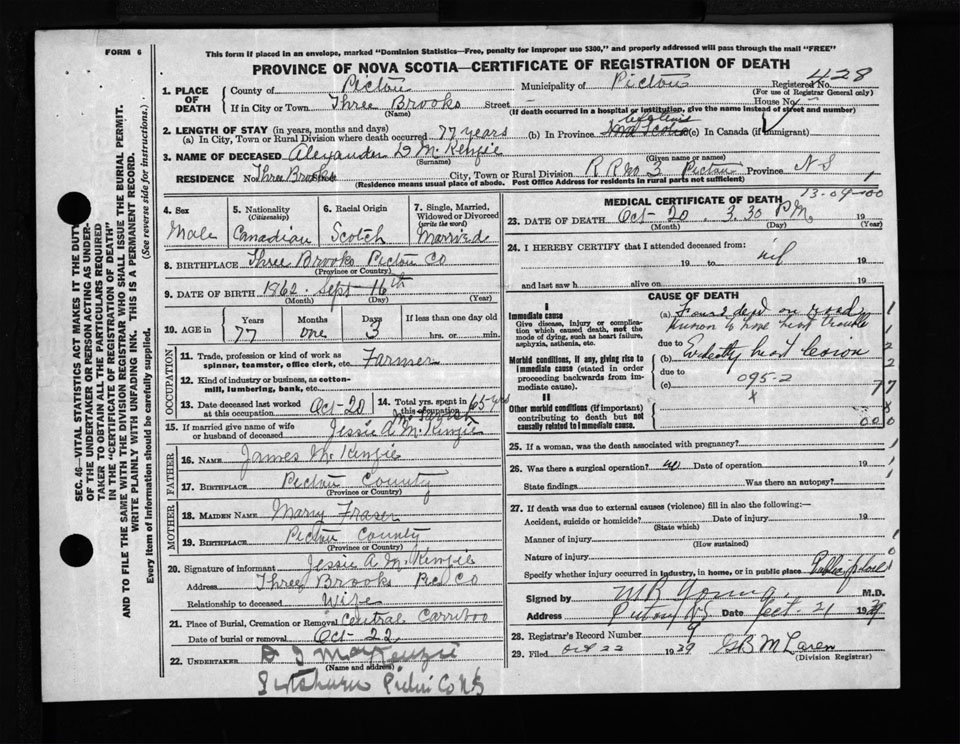 FORM 6
This form if placed in an envelope, marked "Dominion Statistics—Free, penalty for improper use $300," and properly addressed will pass through the mail "FREE"
PROVINCE OF NOVA SCOTIA—CERTIFICATE OF REGISTRATION OF DEATH
428
1. PLACE OF DEATH
County of Pictou Municipality of Pictou Registered No.
(For use of Registrar General only)
If in City or Town Three Brooks Street — House No.
(Name) (If death occurred in a hospital or institution, give the name instead of street and number)
2. LENGTH OF STAY (in years, months and days)
(a) In City, Town or Rural Division where death occurred 77 years (b) In Province Nova Scotia (c) In Canada (if immigrant)
3. NAME OF DECEASED Alexander D McKenzie
(Surname) (Given name or names)
RESIDENCE No. Three Brooks City, Town or Rural Division R R No 3 Pictou Province N S
(Residence means usual place of abode. Post Office Address for residents in rural parts not sufficient)
4. Sex
Male
5. Nationality
(Citizenship)
Canadian
6. Racial Origin
Scotch
7. Single, Married, Widowed or Divorced
(write the word)
Married
8. BIRTHPLACE Three Brooks Pictou Co
(Province or Country)
9. DATE OF BIRTH 1862 Sept 16th
(Month) (Day) (Year)
10. AGE in
Years Months Days If less than one day old
77 one 3 hrs. or min.
OCCUPATION
11. Trade, profession or kind of work as spinner, teamster, office clerk, etc. Farmer
12. Kind of industry or business, as cotton-mill, lumbering, bank, etc.
13. Date deceased last worked at this occupation Oct-20
14. Total yrs. spent in this occupation 65 yrs
15. If married give name of wife or husband of deceased Jessie A McKenzie
FATHER
16. NAME James McKenzie
17. BIRTHPLACE Pictou County
(Province or Country)
MOTHER
18. MAIDEN NAME Mary Fraser
19. BIRTHPLACE Pictou County
(Province or Country)
20. Signature of informant Jessie A McKenzie
Address Three Brooks Pic Co
Relationship to deceased Wife
21. Place of Burial, Cremation or Removal Central Carriboo
Date of burial or removal Oct-22
22. UNDERTAKER MacKenzie
(Name and address)
Pictou Co NS
13-09-00
MEDICAL CERTIFICATE OF DEATH
23. DATE OF DEATH Oct-20. 3.30 P.M. 19
(Month) (Day) (Year)
24. I HEREBY CERTIFY that I attended deceased from:
19 to nil 19
and last saw h alive on 19
CAUSE OF DEATH
I
Immediate cause
Give disease, injury or complication which caused death, not the mode of dying, such as heart failure, asphyxia, asthenia, etc.
(a) Found dead on road
known to have heart trouble
due to
Morbid conditions, if any, giving rise to immediate cause (stated in order proceeding backwards from immediate cause).
(b) Evidently heart lesion
due to
(c) 095-2
II
Other morbid conditions (if important) contributing to death but not causally related to immediate cause.
25. If a woman, was the death associated with pregnancy?
26. Was there a surgical operation? no Date of operation 19
State findings Was there an autopsy?
27. If death was due to external causes (violence) fill in also the following:—
Accident, suicide or homicide? Date of injury 19
(State which)
Manner of injury
(How sustained)
Nature of injury
Specify whether injury occurred in industry, in home, or in public place Public place
Signed by M R Young M.D.
Address Pictou N.S. Date Oct. 21 1939
28. Registrar's Record Number 9
29. Filed Oct 22 1939 G B McLaren
(Division Registrar)
SEC. 46—VITAL STATISTICS ACT MAKES IT THE DUTY OF THE UNDERTAKER OR PERSON ACTING AS UNDERTAKER TO OBTAIN ALL THE PARTICULARS REQUIRED IN THE "CERTIFICATE OF REGISTRATION OF DEATH" AND TO FILE THE SAME WITH THE DIVISION REGISTRAR WHO SHALL ISSUE THE BURIAL PERMIT.
WRITE PLAINLY WITH UNFADING INK. THIS IS A PERMANENT RECORD.
Every item of information should be carefully supplied. (See reverse side for instructions.)